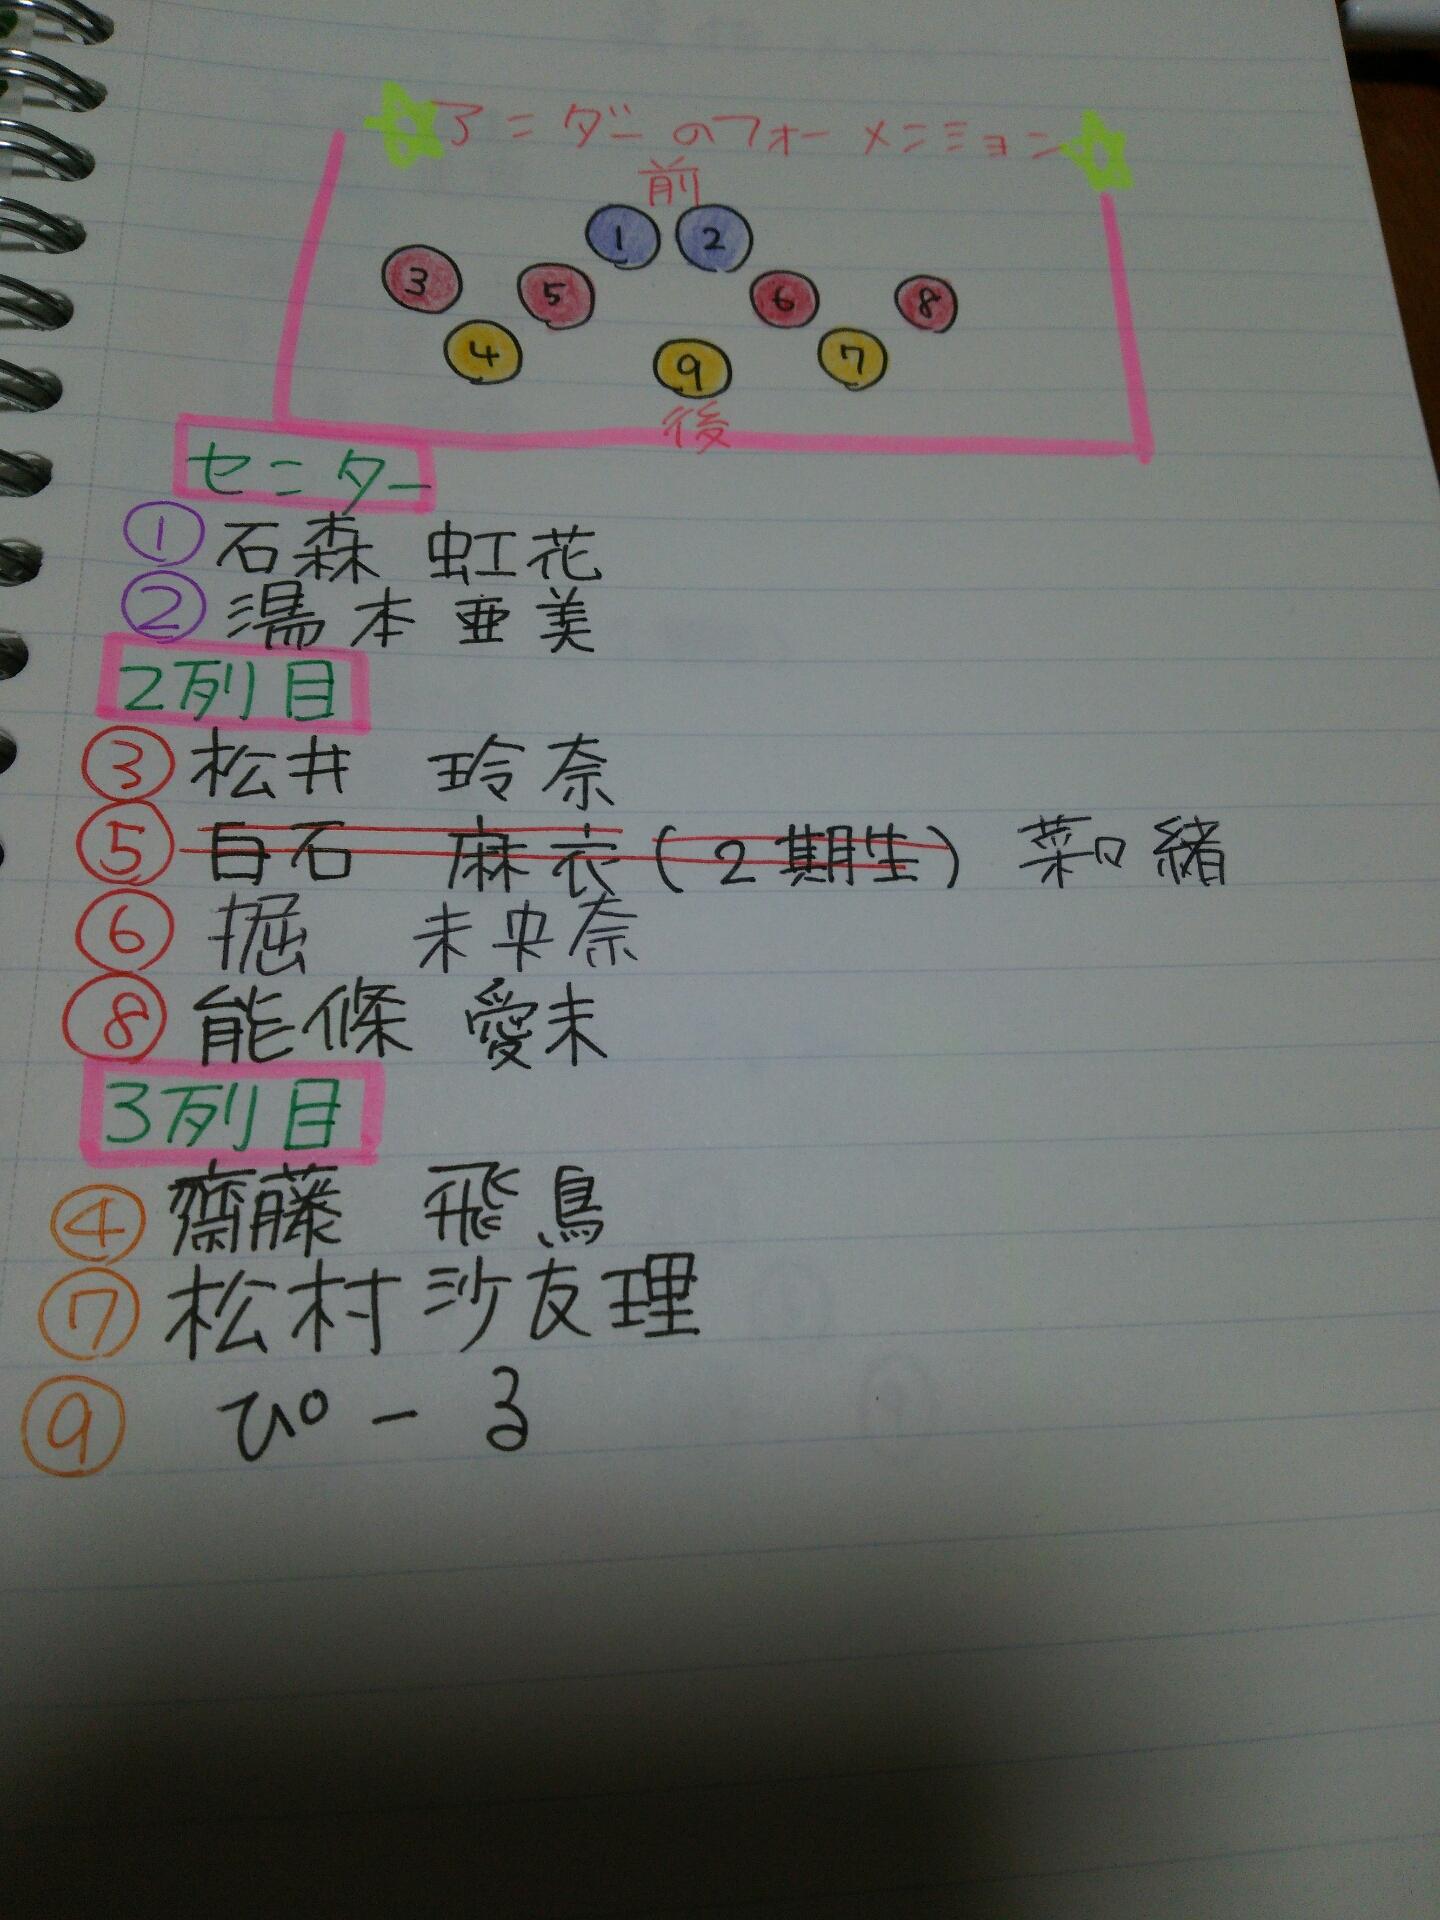 アンダーのフォーメーション
前
1 2
3 5 6 8
4 9 7
後
センター
① 石森 虹花
② 湯本亜美
2列目
③ 松井 玲奈
⑤ 白石 麻衣(2期生) 菜緒
⑥ 掘 未央奈
⑧ 能條 愛未
3列目
④ 齋藤 飛鳥
⑦ 松村沙友理
⑨ ぴーる